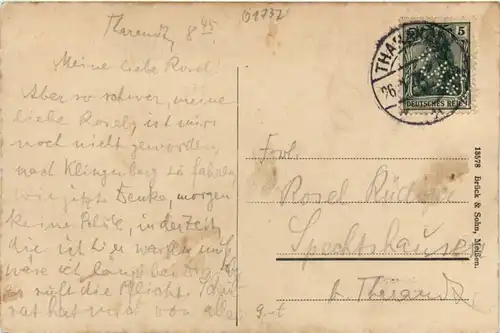 Tharandt, 8 45
01732
Meine liebe Rosel!
Aber so schwer, meine
liebe Rosel, ist mirs
noch nicht geworden,
nach Klingenberg zu fahren,
wie jetzt. Denke, morgen
keine Schule, in der Zeit,
die ich hier warten muß
wäre ich längst bei Dir.
ruft die Pflicht.
rat hat mir von
THARANDT
26
5
DEUTSCHES REICH
Frl.
Rosel
Spechtshausen
b. Tharandt
18578 Brück & Sohn, Meißen.